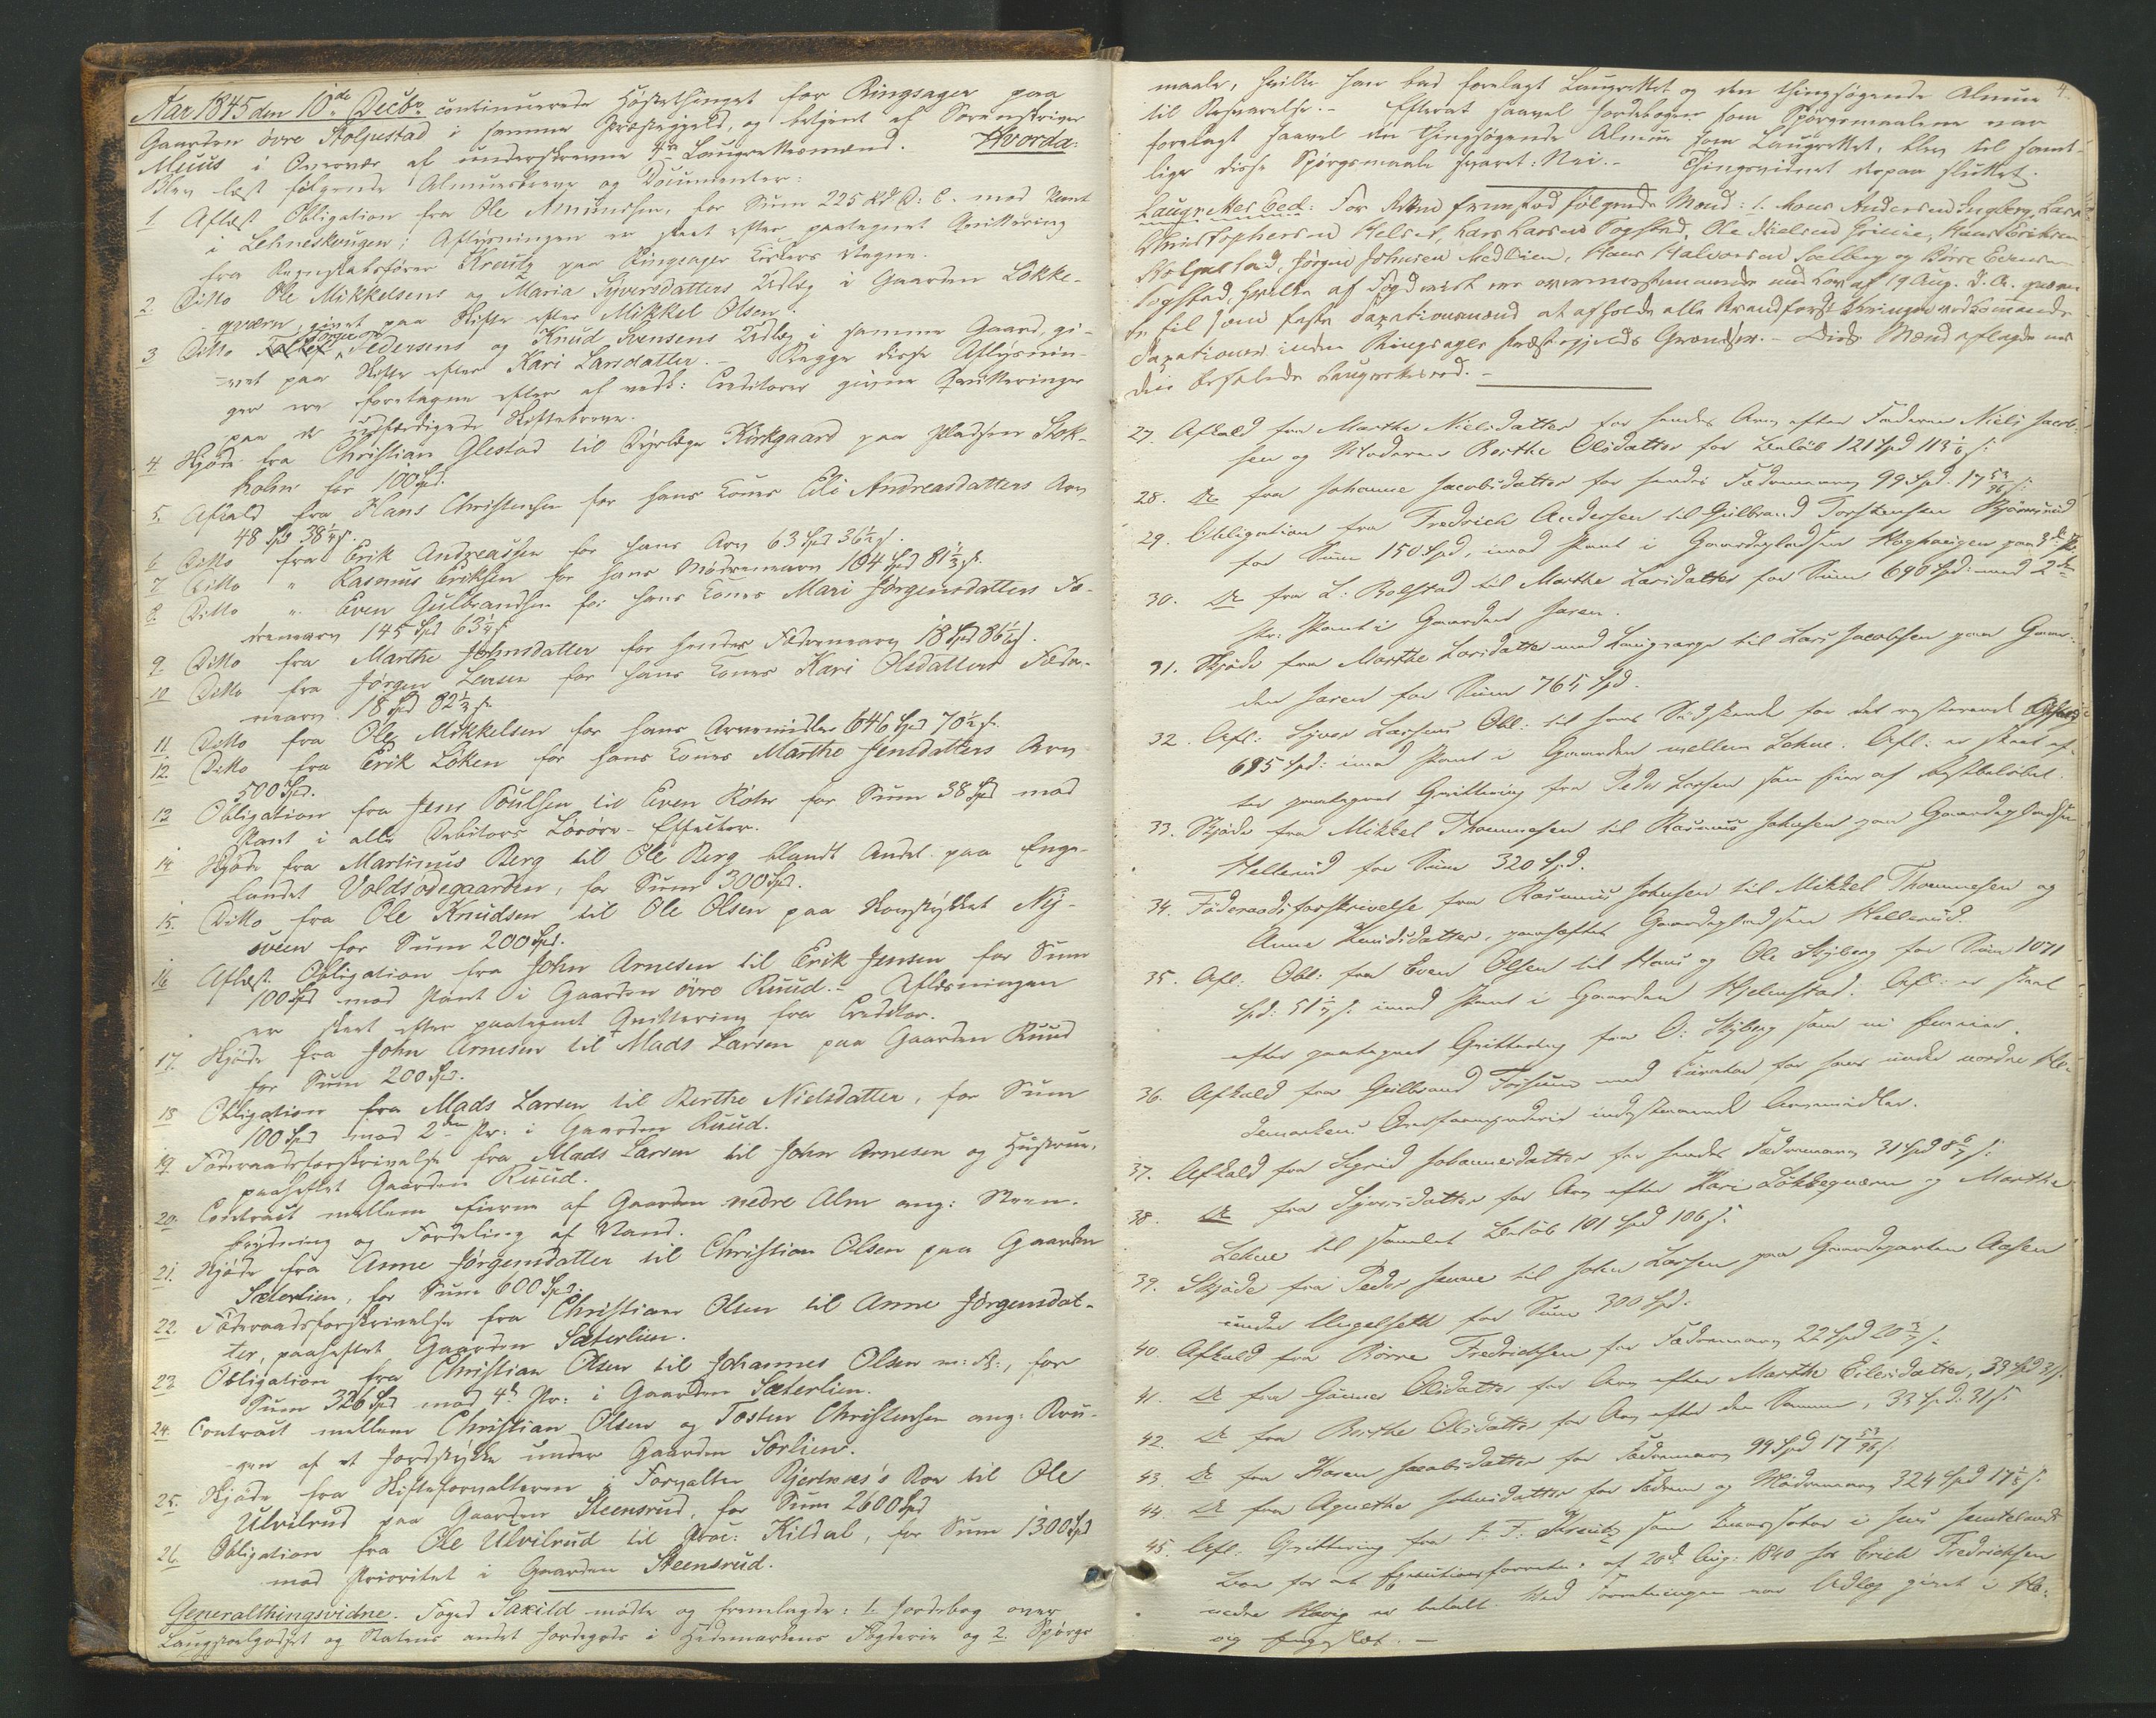 Aar 1845 den 10de Decbr continuerede Høstethinget for Ringsager paa
Gaarden øvre Stolpestad i samme Præstegjeld, og betjent af Sorenskriver
Muus i Overvær af underskrevne 4re Laugrettesmænd. Hvorda:
Blev læst følgende Almuesbreve og Documenter:
1 Aflæst Obligation fra Ole Amundsen, for Sum 225 Rd D: C. mod Pant
i Lehneskougen; Aflysningen er skeet efter paategnet Qvittering
fra Regnskabsfører Kreutz paa Ringsager Kirkers Vegne.
2. Ditto Ole Mikkelsens og Maria Syversdatters Udlæg i Gaarden Løkke-
qværn, givet paa Skifte efter Mikkel Olsen.
3 Ditto Jørgen Pedersens og Knud Svensens Udlæg i samme Gaard, gi-
vet paa Skifte efter Kari Larsdatter. - Begge disse Aflysnin-
ger ere foretagne efter af vedk: Creditorer givne Qvitteringer
paa de udfærdigede Skiftebreve.
4. Skjøde fra Christian Glestad til Dyrlæge Kirkgaard paa Pladsen Stok-
holm for 100 Spd.
5. Afkald fra Hans Christensen for hans Kones Eli Andreasdatters Arv
48 Spd 38 1/4 s.
6 Ditto fra Erik Andreassen for hans Arv 63 Spd 36 1/2 s.
7 Ditto " Rasmus Eriksen for hans Mødrenearv 104 Spd 81 1/3 s.
8. Ditto " Even Gulbrandsen for hans Kones Mari Jørgensdatters Fæ-
drenearv 145 Spd 63 1/4 s
9. Ditto fra Marthe Johnsdatter for hendes Fædrenearv 18 Spd 86 1/2 s.
10 Ditto fra Jørgen Jensen for hans Kones Kari Olsdatters Fædre-
nearv. 18 Spd 82 1/3 s.
11. Ditto fra Ole Mikkelsen for hans Arvemidler 646 Spd 70 1/2 s.
12. Ditto fra Erik Löken for hans Kones Marthe Jensdatters Arv
500 Spd.
13 Obligation fra Jens Poulsen til Even Röhr for Sum 38 Spd mod
Pant i alle Debitors Løsøre-Effecter.
14 Skjøde fra Martinus Berg til Ole Berg blandt Andet paa Enge-
landet Voldsødegaarden, for Sum 300 Spd.
15. Ditto fra Ole Knudsen til Ole Olsen paa Havestykket Ny-
sveen for Sum 200 Spd.
16 Aflæst Obligation fra John Arnesen til Erik Jensen for Sum
100 Spd mod Pant i Gaarden øvre Ruud. - Aflæsningen
er skeet efter paategnet Qvittering fra Creditor.
17. Skjøde fra John Arnesen til Mads Larsen paa Gaarden Ruud
for Sum 200 Spd.
18 Obligation fra Mads Larsen til Berthe Nielsdatter, for Sum
100 Spd mod 2den Pr: i Gaarden Ruud.
19. Føderaadsforskrivelse fra Mads Larsen til John Arnesen og Hustrue,
paaheftet Gaarden Ruud.
20. Contract mellem Eierne af Gaarden nedre Alm ang: Steen-
brydning og Fordeling af Vand.
21. Skjøde fra Anne Jørgensdatter til Christian Olsen paa Gaarden
Sæterlien, for Sum 600 Spd.
22. Føderaadsforskrivelse fra Christian Olsen til Anne Jørgensdat-
ter, paaheftet Gaarden Sæterlien.
23. Obligation fra Christian Olsen til Johannes Olsen m: Fl:, for
Sum 326 Spd mod 4de Pr: i Gaarden Sæterlien.
24. Contract mellem Christian Olsen og Tosten Christensen ang: Bru-
gen af et Jordstykke under Gaarden Sörlien.
25. Skjøde fra Skifteforvalteren i Forvalter Bjerknes's Boe til Ole
Ulvilrud paa Gaarden Steensrud, for Sum 2600 Spd
26 Obligation fra Ole Ulvilrud til Proc: Kildal, for Sum 1300 Spd
mod Prioritet i Gaarden Steensrud.
Generalthingsvidne. Foged Saxild mødte og fremlagde: 1. Jordebog over
Laugstoelgodset og Statens andet Jordegods i Hedemarkens Fogderie og 2. Spørgs
4.
maale, hvilke han bad forelagt Laugrettet og den thingsøgende Almue
til Besvarelse. - Efterat saavel Jordebogen som Spørgsmaalene var
forelagt saavel den thingsøgende Almue som Laugrettet, blev til samt-
lige disse Spørgsmaale svaret: Nei. - Thingsvidnet derpaa sluttet.
Laugrettes Eed: For Retten fremstod følgende Mænd: 1. Hans Andersen Ingberg, Lars
Christophersen Kelset, Lars Larsen Fogstad, Ole Nielsen Hriine, Hans Eriksen
Stolpestad, Jørgen Johnsen Meddlien, Hans Halvorsen Solberg og Börre Evensen
Fogstad, hvilke af Fogden ere overensstemmende med Lov af 19 Aug. d. A. opnævn
te til som faste Taxationsmænd at afholde alle Brandforsikringen vedkommende
Taxationer inden Ringsager Præstegjelds Grændser. - Disse Mænd aflagde nu
den befalede Laugrettes eed. -
27. Afkald fra Marthe Nielsdatter for hendes Arv efter Faderen Niels Jacob-
sen og Moderen Berthe Olsdatter for Beløb 121 Spd 113 1/6 s:
28. Do fra Johanne Jacobsdatter for hendes Fædrenearv 99 Spd. 17 53/96 s:
29. Obligation fra Fredrich Andersen til Gulbrand Torstensen Skjønnerud
for Sum 150 Spd, imod Pant i Gaardepladsen Haghaugen paa 3die Pr.
30. Do fra L: Rolstad til Marthe Larsdatter for Sum 690 Spd: mod 2den
Pr: Pant i Gaarden Jaren.
31. Skjøde fra Marthe Larsdatter med Laugværge til Lars Jacobsen paa Gaar-
den Jaren for Sum 765 Spd.
32. Afl: Syver Larsens Obl: til hans Sødskende for det resterende
695 Spd: imod Pant i Gaarden mellem Lehne. Afl: er skeet ef-
ter paategnet Qvittering fra Peder Larsen som Eier af Restbeløbet.
33. Skjøde fra Mikkel Thommesen til Rasmus Johnsen paa Gaardepladsen
Hellerud for Sum 320 Spd.
34. Föderaadsforskrivelse fra Rasmus Johnsen til Mikkel Thommesen og
Anne Knudsdatter, paaheftet Gaardepladsen Hellerud.
35. Afl: Obl: fra Even Olsen til Hans og Ole Skyberg for Sum 1071
Spd: 51 1/2 s: imod Pant i Gaarden Hjelmstad. Afl: er skeet
efter paategnet Qvittering fra O: Skyberg som ene Eier.
36. Afkald fra Gulbrand Frisum med Curator for hans under nordre He-
demarkens Overformynderie indestaaende Arvemidler.
37. Afkald fra Sigrid Johannesdatter for hendes Fædrenearv 31 Spd 8 6/7 s:
38. Do fra Syversdatter for Arv efter Kari Løkkeqværn og Marthe
Lehne til samlet Beløb 101 Spd 106 s:
39. Skjøde fra Peder Jenne til John Larsen paa Gaardeparten Aasen
under Mugelseth for Sum 300 Spd:
40. Afkald fra Børre Fredrichsen for Fædrenearv 22 Spd 20 3/7 s:
41. Do fra Gunner Olsdatter for Arv efter Marthe Eilersdatter, 33 Spd 31 s.
42. Do fra Berthe Olsdatter for Arv efter den Samme, 33 Spd: 31 s:
43. Do fra Karen Jacobsdatter for Fædrenearv 99 Spd 17 53/96 s.
44. Do fra Agnethe Johnsdatter for Fædrene og Mødrenearv 324 Spd 17 1/2 s:
45. Afl: Qvittering fra A. F. Kreutz som Incassator i hans Handelsend
Boe for at Executionsforretn: af 20de Aug: 1840 hos Erich Fredrichsen
nedre Kvig er betalt. Ved Forretningen var Udlæg givet i Kla-
vig Eugeslæt. -